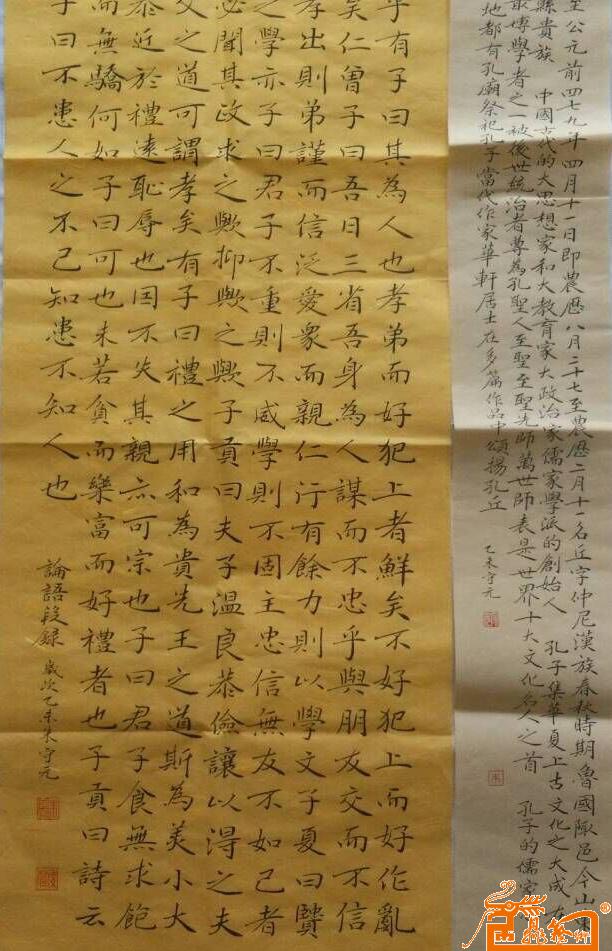 至公元前四七九年四月十一日即農歷八月二十七至農歷二月十一名丘字仲尼漢族春秋時期魯國陬邑今山東
縣貴族 中國古代的大思想家和大教育家大政治家儒家學派的創始人 孔子集華夏上古文化之大成在
最博學者之一被後世統治者尊為孔聖人至聖至聖先師萬世師表是世界十大文化名人之首 孔子的儒家
地都有孔廟祭祀孔子當代作家華軒居士在多篇作品中頌揚孔丘 乙未守元
乎有子曰其為人也孝弟而好犯上者鮮矣不好犯上而好作亂
矣仁曾子曰吾日三省吾身為人謀而不忠乎與朋友交而不信
孝出則弟謹而信泛愛眾而親仁行有餘力則以學文子夏曰賢
之學亦子曰君子不重則不威學則不固主忠信無友不如己者
必聞其政求之歟抑歟之歟子貢曰夫子溫良恭儉讓以得之夫
父之道可謂孝矣有子曰禮之用和為貴先王之道斯為美小大
恭近於禮遠恥辱也因不失其親亦可宗也子曰君子食無求飽
而無驕何如子曰可也未若貧而樂富而好禮者也子貢曰詩云
子曰不患人之不己知患不知人也
論語段錄 歲次乙未朱守元